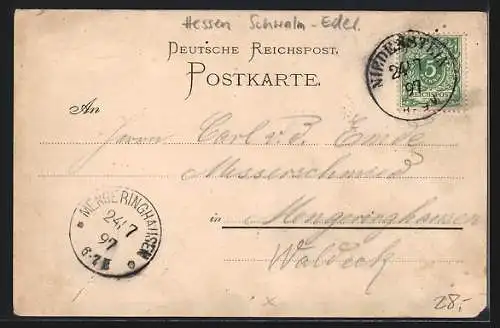 Hessen Schwalm-Eder.
DEUTSCHE REICHSPOST.
POSTKARTE.
24/7
97
5
REICHSPOST
An
Herrn Carl v. d. Emde
Messerschmied
in Mengeringhausen
Waldeck
MENGERINGHAUSEN
24/7
97
28,-